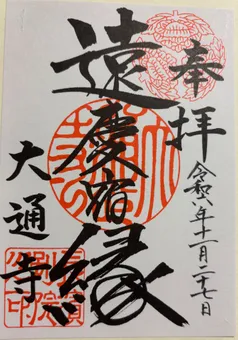 奉拝
令和六年十一月二十七日
遠慶宿縁
大通寺
長濱別院印